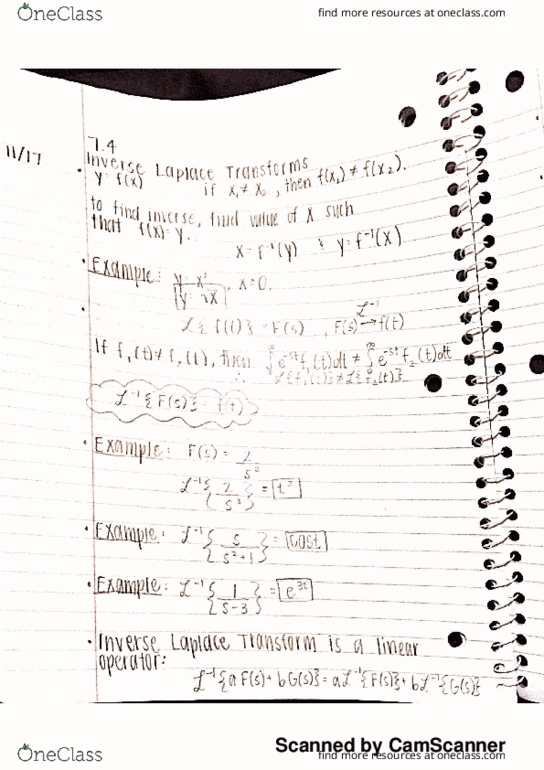 OneClass
find more resources at oneclass.com
11/17
7.4
Inverse Laplace Transforms
y = f(x) if x₁ ≠ x₂, then f(x₁) ≠ f(x₂).
to find inverse, find value of x such
that f(x)=y.
x = f⁻¹(y) & y = f⁻¹(x)
• Example: y = x², x ≥ 0.
y = √x
ℒ{f(t)} = F(s), F(s) →^{ℒ⁻¹} f(t)
If f₁(t) ≠ f₂(t), then ∫₀^∞ e^{-st} f₁(t)dt ≠ ∫₀^∞ e^{-st} f₂(t)dt
∴ ℒ{f₁(t)} ≠ ℒ{f₂(t)}
ℒ⁻¹{F(s)} = f(t)
• Example: F(s) = 2/s³
ℒ⁻¹{2/s³} = t²
• Example: ℒ⁻¹{s/(s²+1)} = cost
• Example: ℒ⁻¹{1/(s-3)} = e^{3t}
• Inverse Laplace Transform is a linear
operator:
ℒ⁻¹{aF(s) + bG(s)} = aℒ⁻¹{F(s)} + bℒ⁻¹{G(s)}
Scanned by CamScanner
OneClass
find more resources at oneclass.com